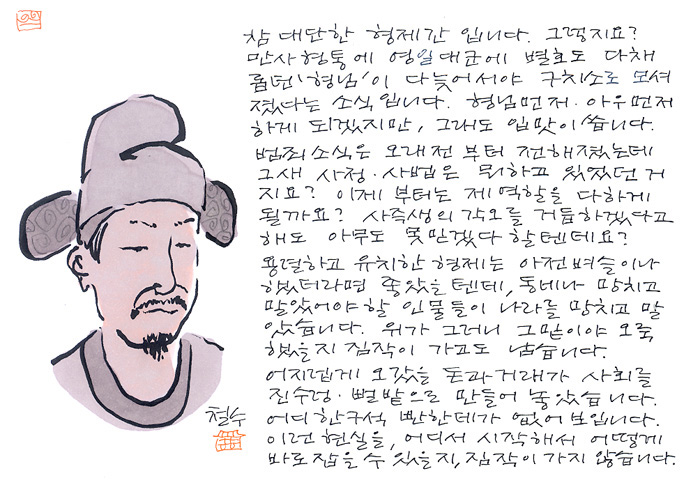 참 대단한 형제간 입니다. 그렇지요?
만사형통에 영일대군에 별호도 다채
롭던 '형님'이 다 늦어서야 구치소로 모셔
졌다는 소식입니다. 형님먼저·아우먼저
하게 되겠지만, 그래도 입맛이 씁니다.
범죄소식은 오래전 부터 전해졌는데
그새 사정·사법은 뭐하고 있었던 거
지요? 이제 부터는 제 역할을 다하게
될까요? 사즉생의 각오를 거듭하겠다고
해도 아무도 못믿겠다 할텐데요?
용렬하고 유치한 형제는 아전벼슬이나
했더라면 좋았을텐데, 동네나 망치고
말았어야 할 인물들이 나라를 망치고 말
았습니다. 위가 그러니 그 밑이야 오죽
했을지 짐작이 가고도 남습니다.
어지럽게 오갔을 돈과 거래가 사회를
진수렁·뻘밭으로 만들어 놓았습니다.
어디 한구석 빤한데가 없어 보입니다.
이런 현실을, 어디서 시작해서 어떻게
바로 잡을 수 있을지, 짐작이 가지 않습니다.
철수